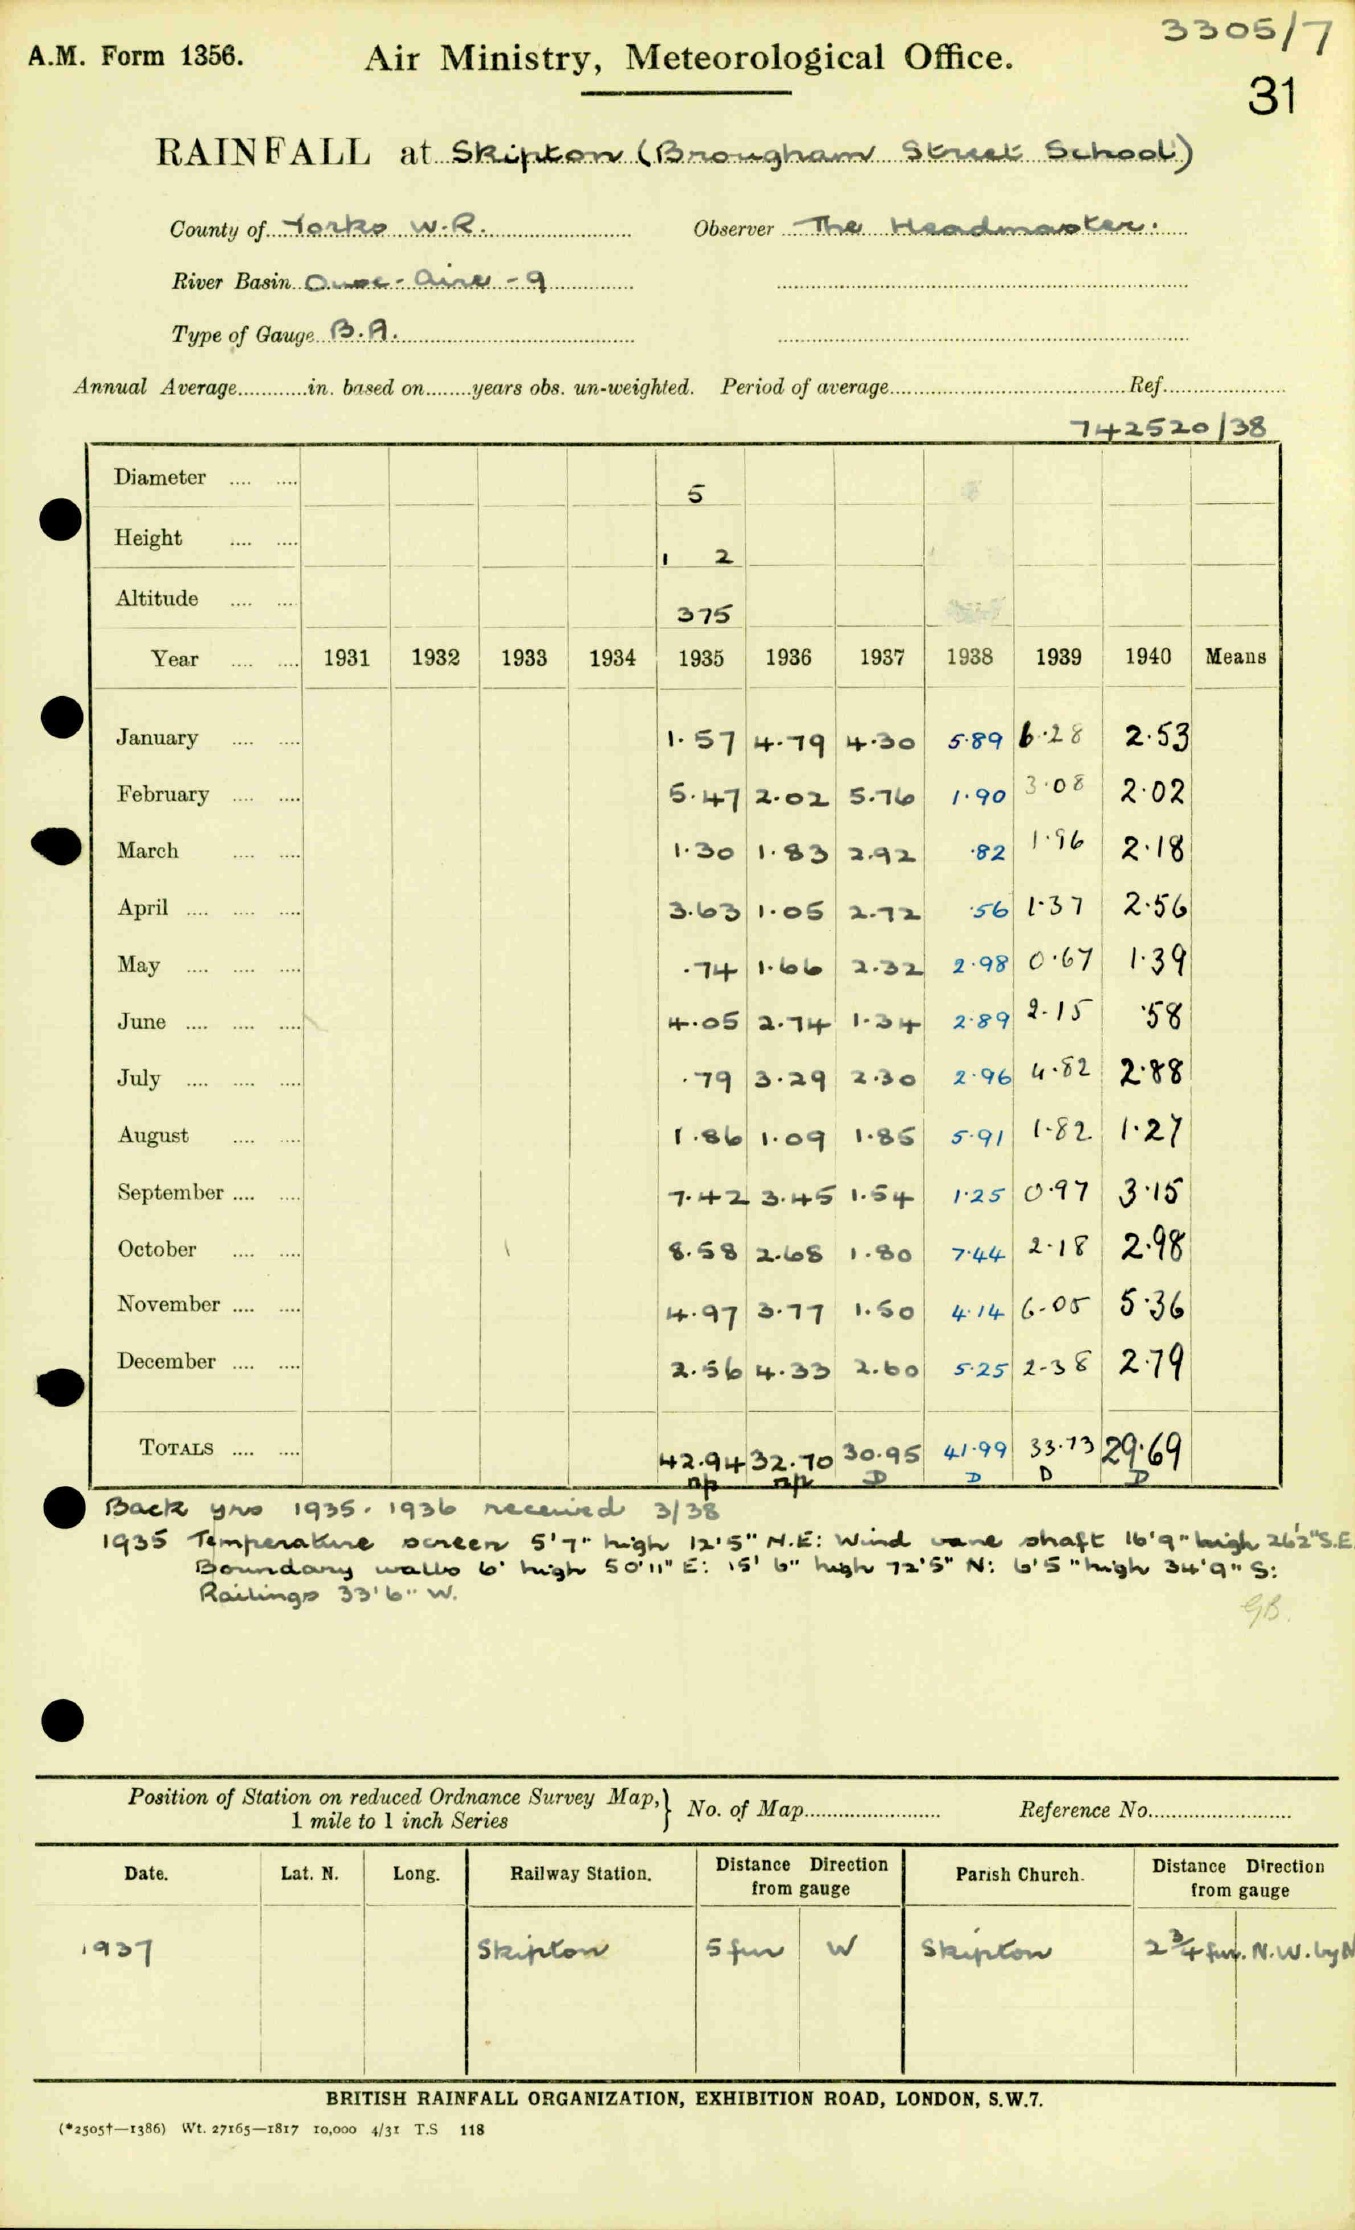 3305/7
A.M. Form 1356. Air Ministry, Meteorological Office.
31
RAINFALL at Skipton (Brougham Street School)
County of Yorks W.R. Observer The Headmaster.
River Basin Ouse-Aire-9
Type of Gauge B.A.
Annual Average in. based on years obs. un-weighted. Period of average Ref.
742520/38
Diameter 5
Height 1 2
Altitude 375
Year 1931 1932 1933 1934 1935 1936 1937 1938 1939 1940 Means
January 1.57 4.79 4.30 5.89 6.28 2.53
February 5.47 2.02 5.76 1.90 3.08 2.02
March 1.30 1.83 2.92 .82 1.96 2.18
April 3.63 1.05 2.72 .56 1.37 2.56
May .74 1.66 2.32 2.98 0.67 1.39
June 4.05 2.74 1.34 2.89 2.15 .58
July .79 3.29 2.30 2.96 4.82 2.88
August 1.86 1.09 1.85 5.91 1.82 1.27
September 7.42 3.45 1.54 1.25 0.97 3.15
October 8.58 2.68 1.80 7.44 2.18 2.98
November 4.97 3.77 1.50 4.14 6.05 5.36
December 2.56 4.33 2.60 5.25 2.38 2.79
TOTALS 42.94 32.70 30.95 41.99 33.73 29.69
np np D D D D
Back yrs 1935. 1936 received 3/38
1935 Temperature screen 5'7" high 12'5" N.E: Wind vane shaft 16'9" high 26'2" S.E.
Boundary walls 6' high 50'11" E: 15' 6" high 72'5" N: 6'5" high 34'9" S:
Railings 33'6" W.
GB.
Position of Station on reduced Ordnance Survey Map, } No. of Map Reference No.
1 mile to 1 inch Series
Date. Lat. N. Long. Railway Station. Distance Direction from gauge Parish Church. Distance Direction from gauge
1937 Skipton 5 fur W Skipton 2 3/4 fur. N.W. by N
BRITISH RAINFALL ORGANIZATION, EXHIBITION ROAD, LONDON, S.W.7.
(*2505†—1386) Wt. 27165—1817 10,000 4/31 T.S 118